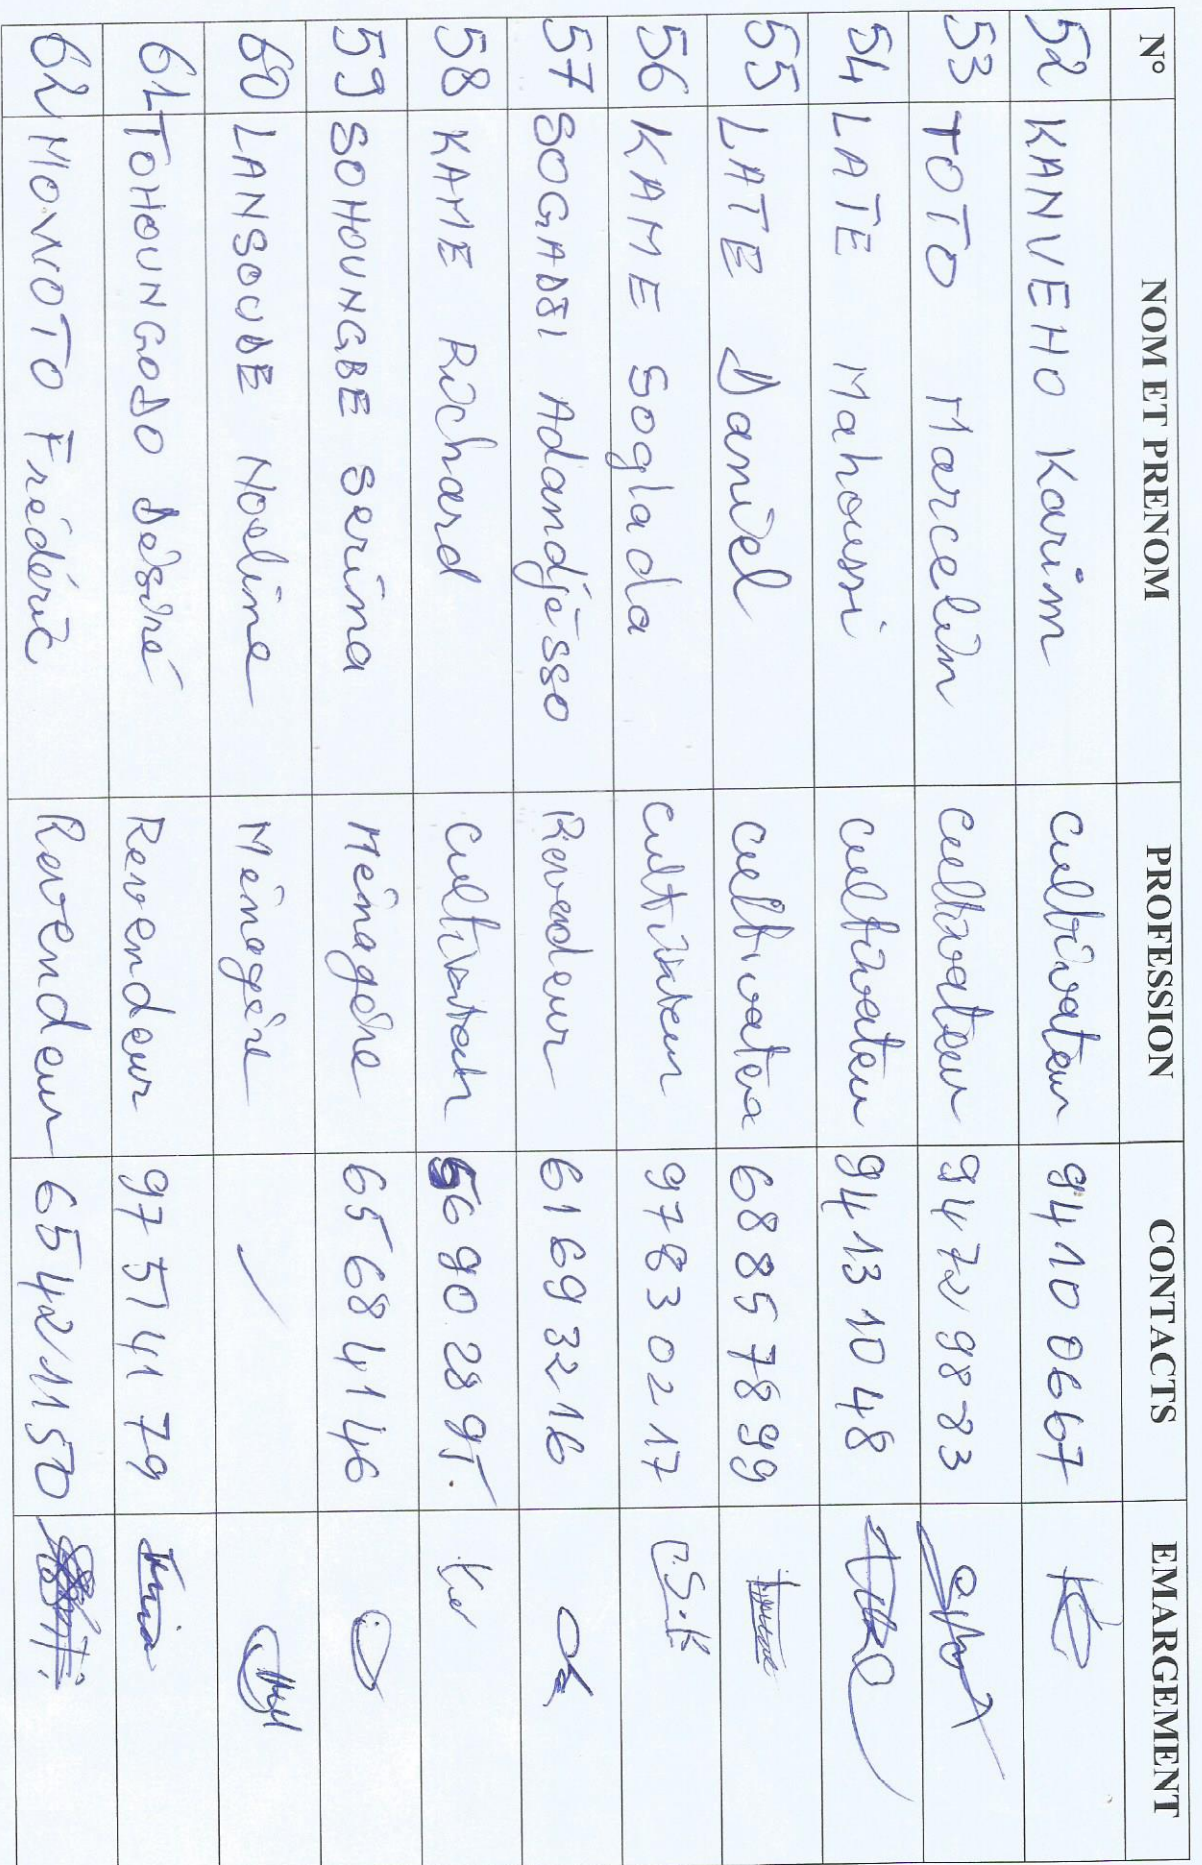 N° NOM ET PRENOM PROFESSION CONTACTS EMARGEMENT
52 KANVEHO Karim cultivateur 94 10 06 67
53 TOTO Marcelin cultivateur 94 72 98 83
54 LATE Mahoussi cultivateur 94 13 10 48
55 LATE Daniel cultivateu 68 85 78 99
56 KAME Soglada cultivateur 97 83 02 17
57 SOGADJI Adandjèsso Revendeur 61 69 32 16
58 KAME Richard cultivateur 56 90 28 95.
59 SOHOUNGBE Serina Ménagère 65 68 41 46
60 LANSOUDE Noeline Ménagère /
61 TOHOUNGODO Désiré Revendeur 97 57 41 79
62 Frédéric Revendeur 65 42 11 50